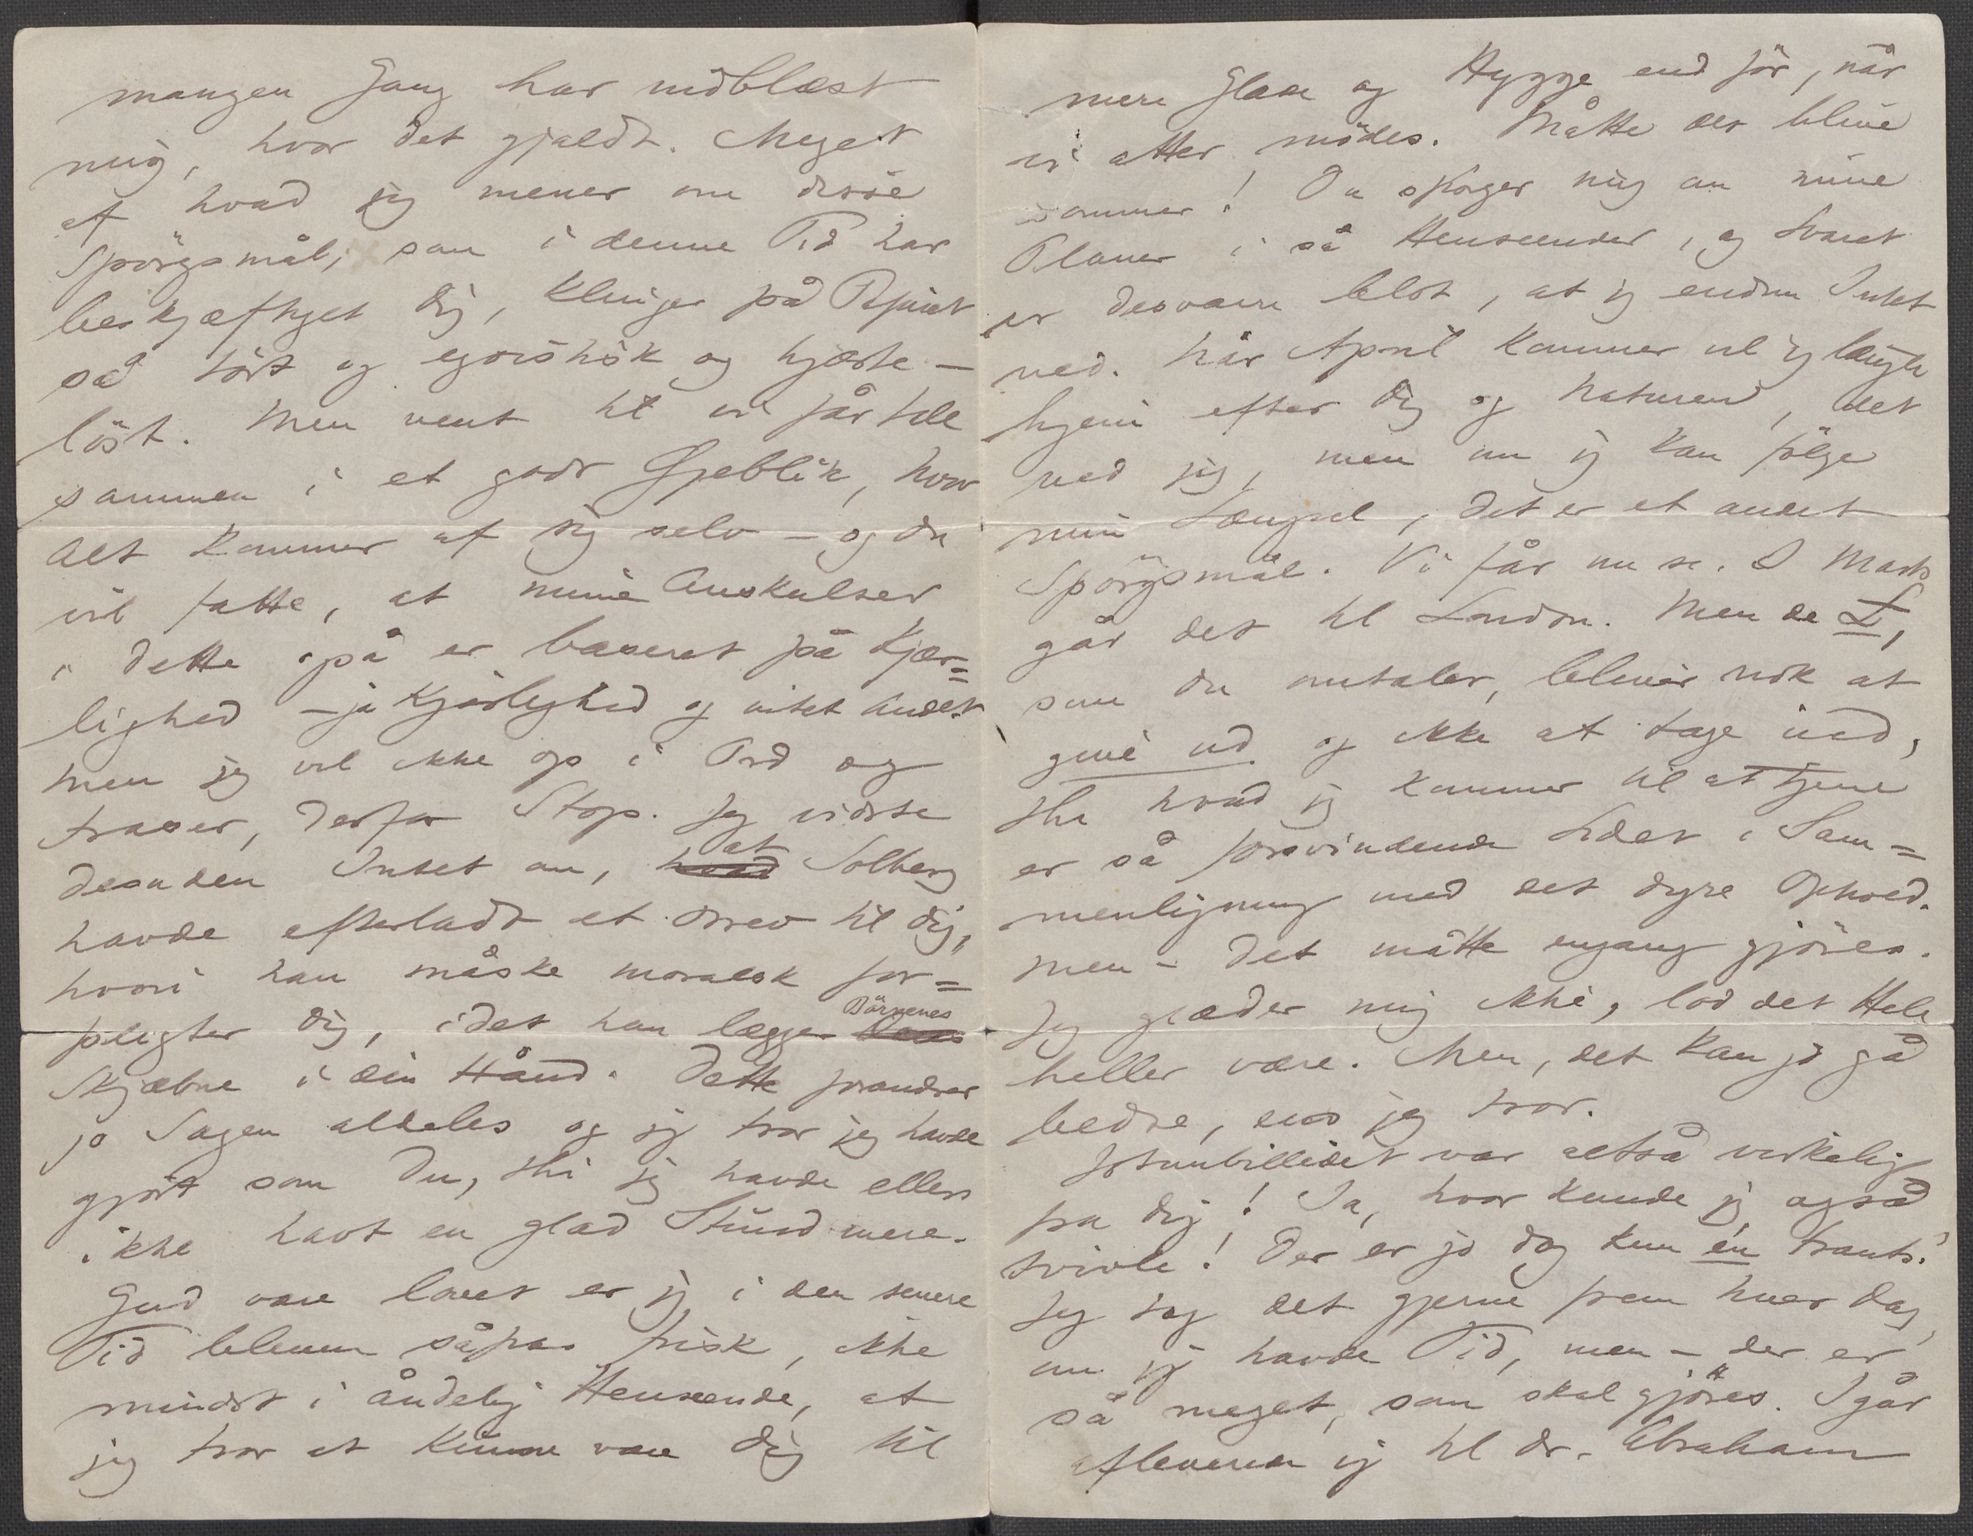 mangen Gang har nidblæst
mig, hvor det gjaldt. Meget
af hvad jeg mener om disse
Spörgsmål, som i denne Tid har
beskjæftiget dig, klinger på Papiret
så tört og egoistisk og hjerte-
löst. Men vent til vi får tale
sammen i et godt Øjeblik, hvor
Alt kommer af sig selv – og du
vil fatte, at mine Anskuelser
i dette også er baseret på Kjær=
lighed – ja Kjærlighed og intet Andet
Men jeg vil ikke op i Ord og
fraser, derfor Stop. Jeg vidste
desuden Intet om, at Solberg
havde efterladt et Brev til dig,
hvori han måske moralsk for=
pligter dig, idet han lægger Börnenes
Skjæbne i din Hånd. Dette forandrer
jo Sagen aldeles og jeg tror jeg havde
gjort som Du, thi jeg havde ellers
ikke havt en glad Stund mere.
Gud være lovet er jeg i den senere
Tid bleven såpas frisk, ikke
mindst i åndelig Henseende, at
jeg tror at kunne være dig til
mere Glæde og Hygge end för, når
vi atter mödes. Måtte det blive
sommer! Du spörger mig om mine
Planer i så Henseender, og Svaret
er desværre blot, at jeg endnu Intet
ved. Når April kommer vil jeg længte
hjem efter dig og Naturen, det
ved jeg, men om jeg kan fölge
min Længsel, det er et andet
Spörgsmål. Vi får nu se. I Marts
går det til London. Men de £,
som du omtaler, bliver nok at
give ud og ikke at tage ind,
thi hvad jeg kommer til at tjene
er så forsvindende Lidet i Sam=
menligning med det dyre Ophold.
Men – det måtte engang gjöres.
Jeg glæder mig ikke, lod det Hele
heller være. Men, det kan jo gå
bedre, end jeg tror.
Jotunbilledet var altså virkelig
fra dig! Ja, hvor kunde jeg også
tvivle! Der er jo dog kun én Frants!
Jeg tog det gjerne frem hver Dag,
om jeg havde Tid, men – der er
så meget, som skal gjöres. Igår
afleverer jeg til dr. Abraham